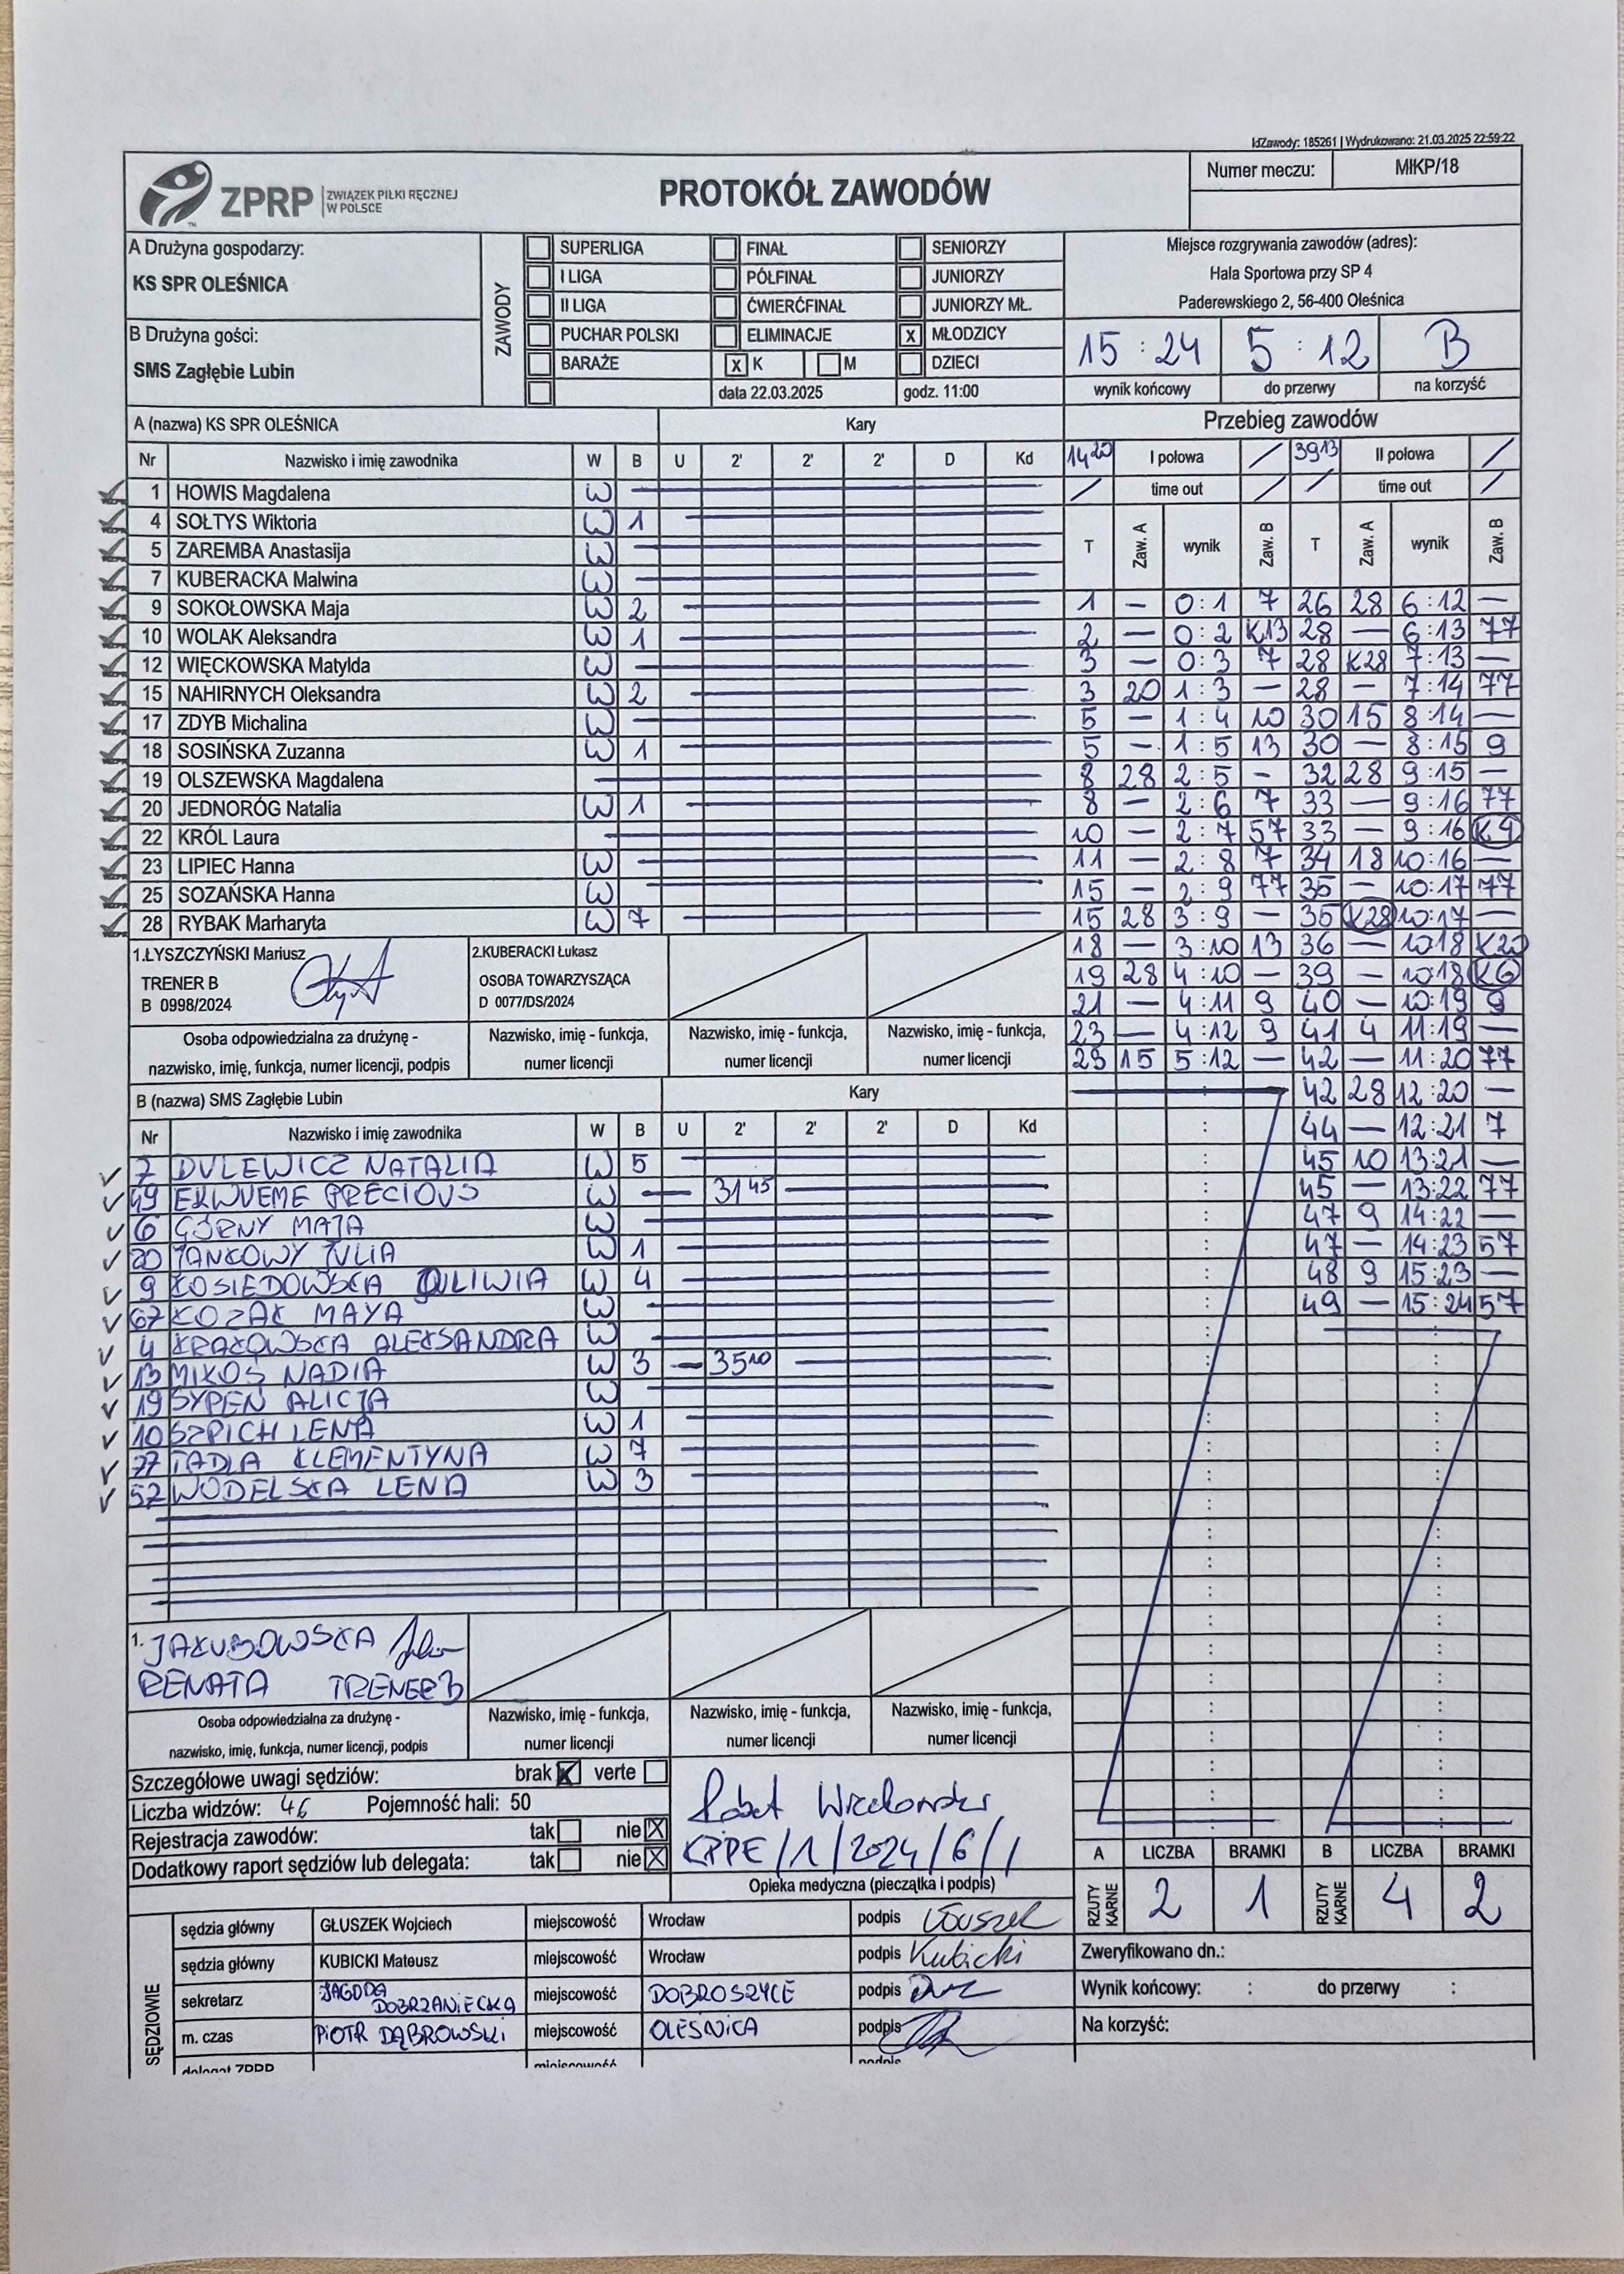 IdZawody: 185261 | Wydrukowano: 21.03.2025 22:59:22
ZPRP ZWIĄZEK PIŁKI RĘCZNEJ W POLSCE
PROTOKÓŁ ZAWODÓW
Numer meczu: MłKP/18
A Drużyna gospodarzy:
KS SPR OLEŚNICA
B Drużyna gości:
SMS Zagłębie Lubin
ZAWODY
SUPERLIGA FINAŁ SENIORZY
I LIGA PÓŁFINAŁ JUNIORZY
II LIGA ĆWIERĆFINAŁ JUNIORZY MŁ.
PUCHAR POLSKI ELIMINACJE x MŁODZICY
BARAŻE x K M DZIECI
data 22.03.2025 godz. 11:00
Miejsce rozgrywania zawodów (adres):
Hala Sportowa przy SP 4
Paderewskiego 2, 56-400 Oleśnica
15 : 24 5 : 12 B
wynik końcowy do przerwy na korzyść
A (nazwa) KS SPR OLEŚNICA Kary
Nr Nazwisko i imię zawodnika W B U 2' 2' 2' D Kd
1 HOWIS Magdalena W
4 SOŁTYS Wiktoria W 1
5 ZAREMBA Anastasija W
7 KUBERACKA Malwina W
9 SOKOŁOWSKA Maja W 2
10 WOLAK Aleksandra W 1
12 WIĘCKOWSKA Matylda W
15 NAHIRNYCH Oleksandra W 2
17 ZDYB Michalina W
18 SOSIŃSKA Zuzanna W 1
19 OLSZEWSKA Magdalena
20 JEDNORÓG Natalia W 1
22 KRÓL Laura
23 LIPIEC Hanna W
25 SOZAŃSKA Hanna W
28 RYBAK Marharyta W 7
1.ŁYSZCZYŃSKI Mariusz
TRENER B
B 0998/2024
2.KUBERACKI Łukasz
OSOBA TOWARZYSZĄCA
D 0077/DS/2024
Osoba odpowiedzialna za drużynę -
nazwisko, imię, funkcja, numer licencji, podpis
Nazwisko, imię - funkcja,
numer licencji
Nazwisko, imię - funkcja,
numer licencji
Nazwisko, imię - funkcja,
numer licencji
B (nazwa) SMS Zagłębie Lubin Kary
Nr Nazwisko i imię zawodnika W B U 2' 2' 2' D Kd
7 DULEWICZ NATALIA W 5
49 EKWUEME PRECIOUS W — 31 45
6 GÓRNY MAJA W
20 JANKOWY JULIA W 1
9 KOSIEDOWSKA OLIWIA W 4
67 KOZAK MAYA W
4 KRAKOWSKA ALEKSANDRA W
13 MIKOŚ NADIA W 3 — 35 10
19 SYPEŃ ALICJA W
10 SZPICH LENA W 1
77 TADLA KLEMENTYNA W 7
57 WODELSKA LENA W 3
1. JAKUBOWSKA
RENATA TRENER B
Osoba odpowiedzialna za drużynę -
nazwisko, imię, funkcja, numer licencji, podpis
Nazwisko, imię - funkcja,
numer licencji
Nazwisko, imię - funkcja,
numer licencji
Nazwisko, imię - funkcja,
numer licencji
Przebieg zawodów
14 20 I połowa / 39 13 II połowa /
/ time out / / time out /
T Zaw. A wynik Zaw. B T Zaw. A wynik Zaw. B
1 — 0:1 7 26 28 6:12 —
2 — 0:2 K13 28 — 6:13 77
3 — 0:3 7 28 K28 7:13 —
3 20 1:3 — 28 — 7:14 77
5 — 1:4 10 30 15 8:14 —
5 — 1:5 13 30 — 8:15 9
8 28 2:5 — 32 28 9:15 —
8 — 2:6 7 33 — 9:16 77
10 — 2:7 57 33 — 9:16 K9
11 — 2:8 7 34 18 10:16 —
15 — 2:9 77 35 — 10:17 77
15 28 3:9 — 35 K28 10:17 —
18 — 3:10 13 36 — 10:18 K20
19 28 4:10 — 39 — 10:18 K6
21 — 4:11 9 40 — 10:19 9
23 — 4:12 9 41 4 11:19 —
23 15 5:12 — 42 — 11:20 77
42 28 12:20 —
44 — 12:21 7
45 10 13:21 —
45 — 13:22 77
47 9 14:22 —
47 — 14:23 57
48 9 15:23 —
49 — 15:24 57
Szczegółowe uwagi sędziów: brak x verte
Liczba widzów: 46 Pojemność hali: 50
Rejestracja zawodów: tak nie X
Dodatkowy raport sędziów lub delegata: tak nie X
KPPE/1/2024/6/1
Opieka medyczna (pieczątka i podpis)
A LICZBA BRAMKI B LICZBA BRAMKI
RZUTY KARNE 2 1 RZUTY KARNE 4 2
SĘDZIOWIE
sędzia główny GŁUSZEK Wojciech miejscowość Wrocław podpis Głuszek
sędzia główny KUBICKI Mateusz miejscowość Wrocław podpis Kubicki
sekretarz JAGODA DOBRZANIECKA miejscowość DOBROSZYCE podpis
m. czas PIOTR DĄBROWSKI miejscowość OLEŚNICA podpis
delegat ZPRP miejscowość podpis
Zweryfikowano dn.:
Wynik końcowy: : do przerwy :
Na korzyść: